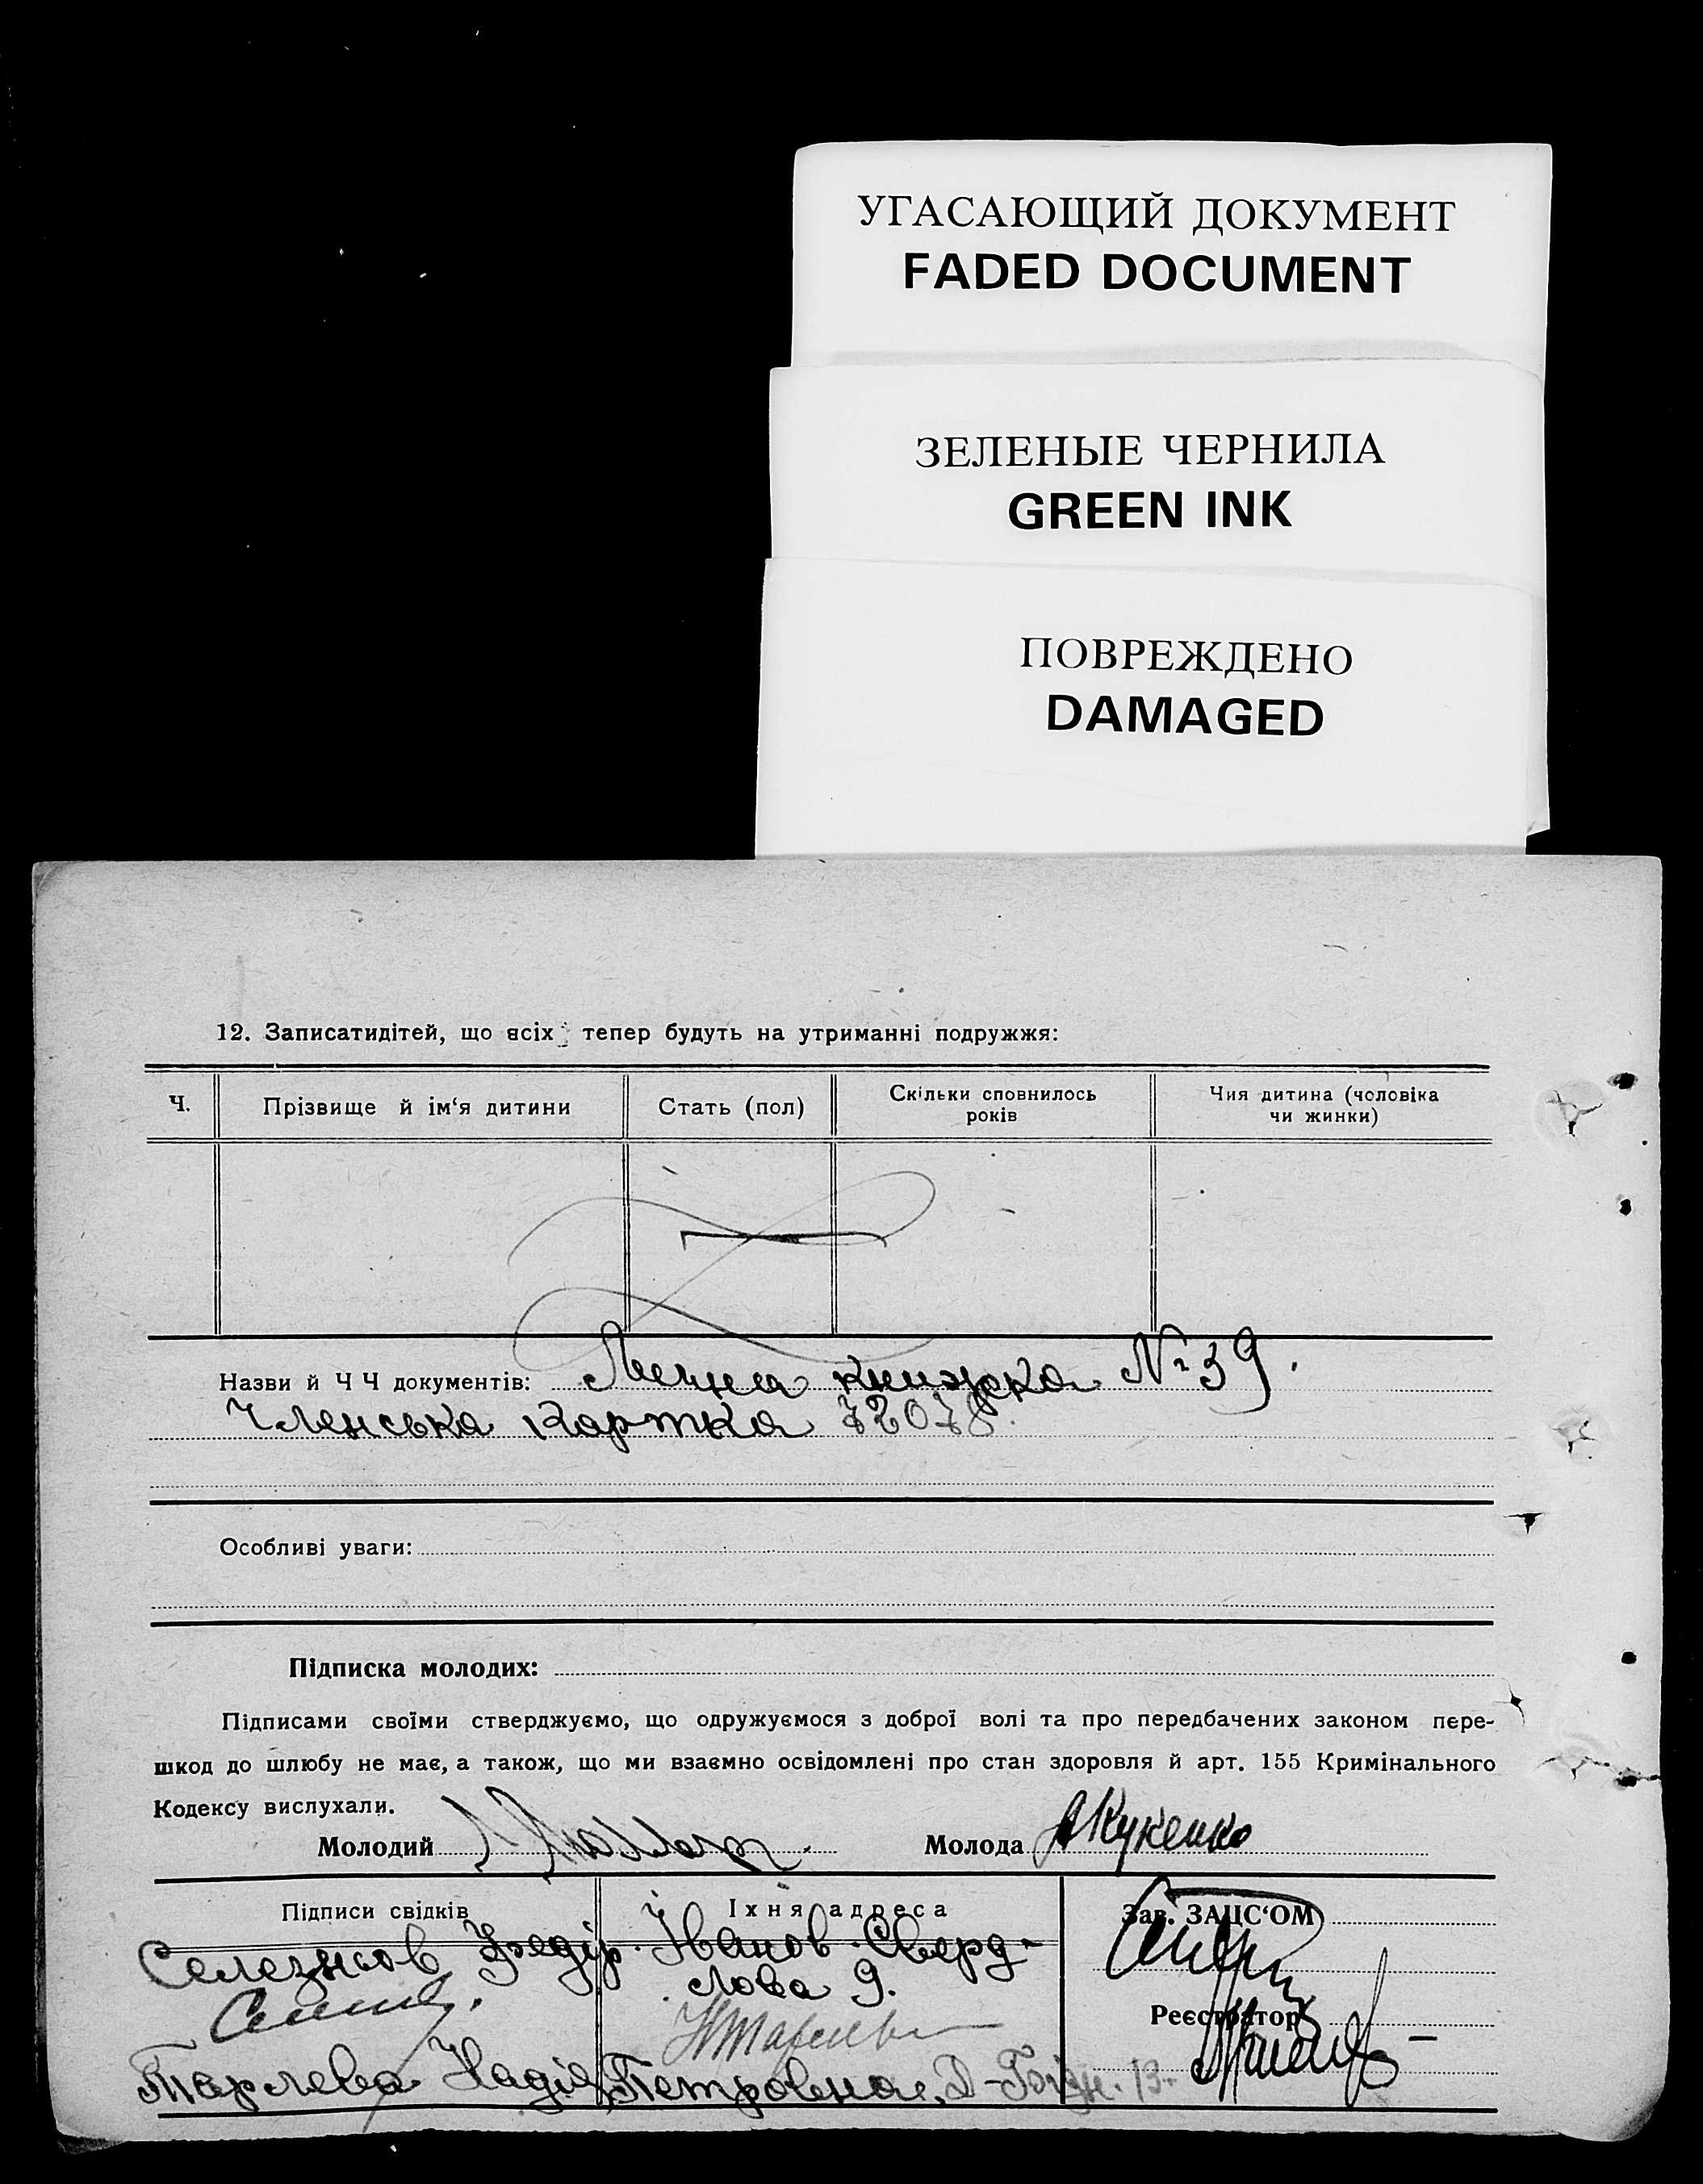 УГАСАЮЩИЙ ДОКУМЕНТ
FADED DOCUMENT
ЗЕЛЕНЫЕ ЧЕРНИЛА
GREEN INK
ПОВРЕЖДЕНО
DAMAGED
12. Записатидітей, що всіх тепер будуть на утриманні подружжя:
Ч.
Прізвище й ім‘я дитини
Стать (пол)
Скільки сповнилось
років
Чия дитина (чоловіка
чи жинки)
Назви й Ч Ч документів: книжка № 39.
Членська картка 72078.
Особливі уваги:
Підписка молодих:
Підписами своїми стверджуємо, що одружуємося з доброї волі та про передбачених законом пере-
шкод до шлюбу не має, а також, що ми взаємно освідомлені про стан здоровля й арт. 155 Кримінального
Кодексу вислухали.
Молодий
Молода АКукенко
Підписи свідків
Їхня адреса
Зав. ЗАЦС‘ОМ
Селезньов Федір. Іванов. Сверд-
лова 9.
Реєстратор
Тарлева Надія Петровна, 13.